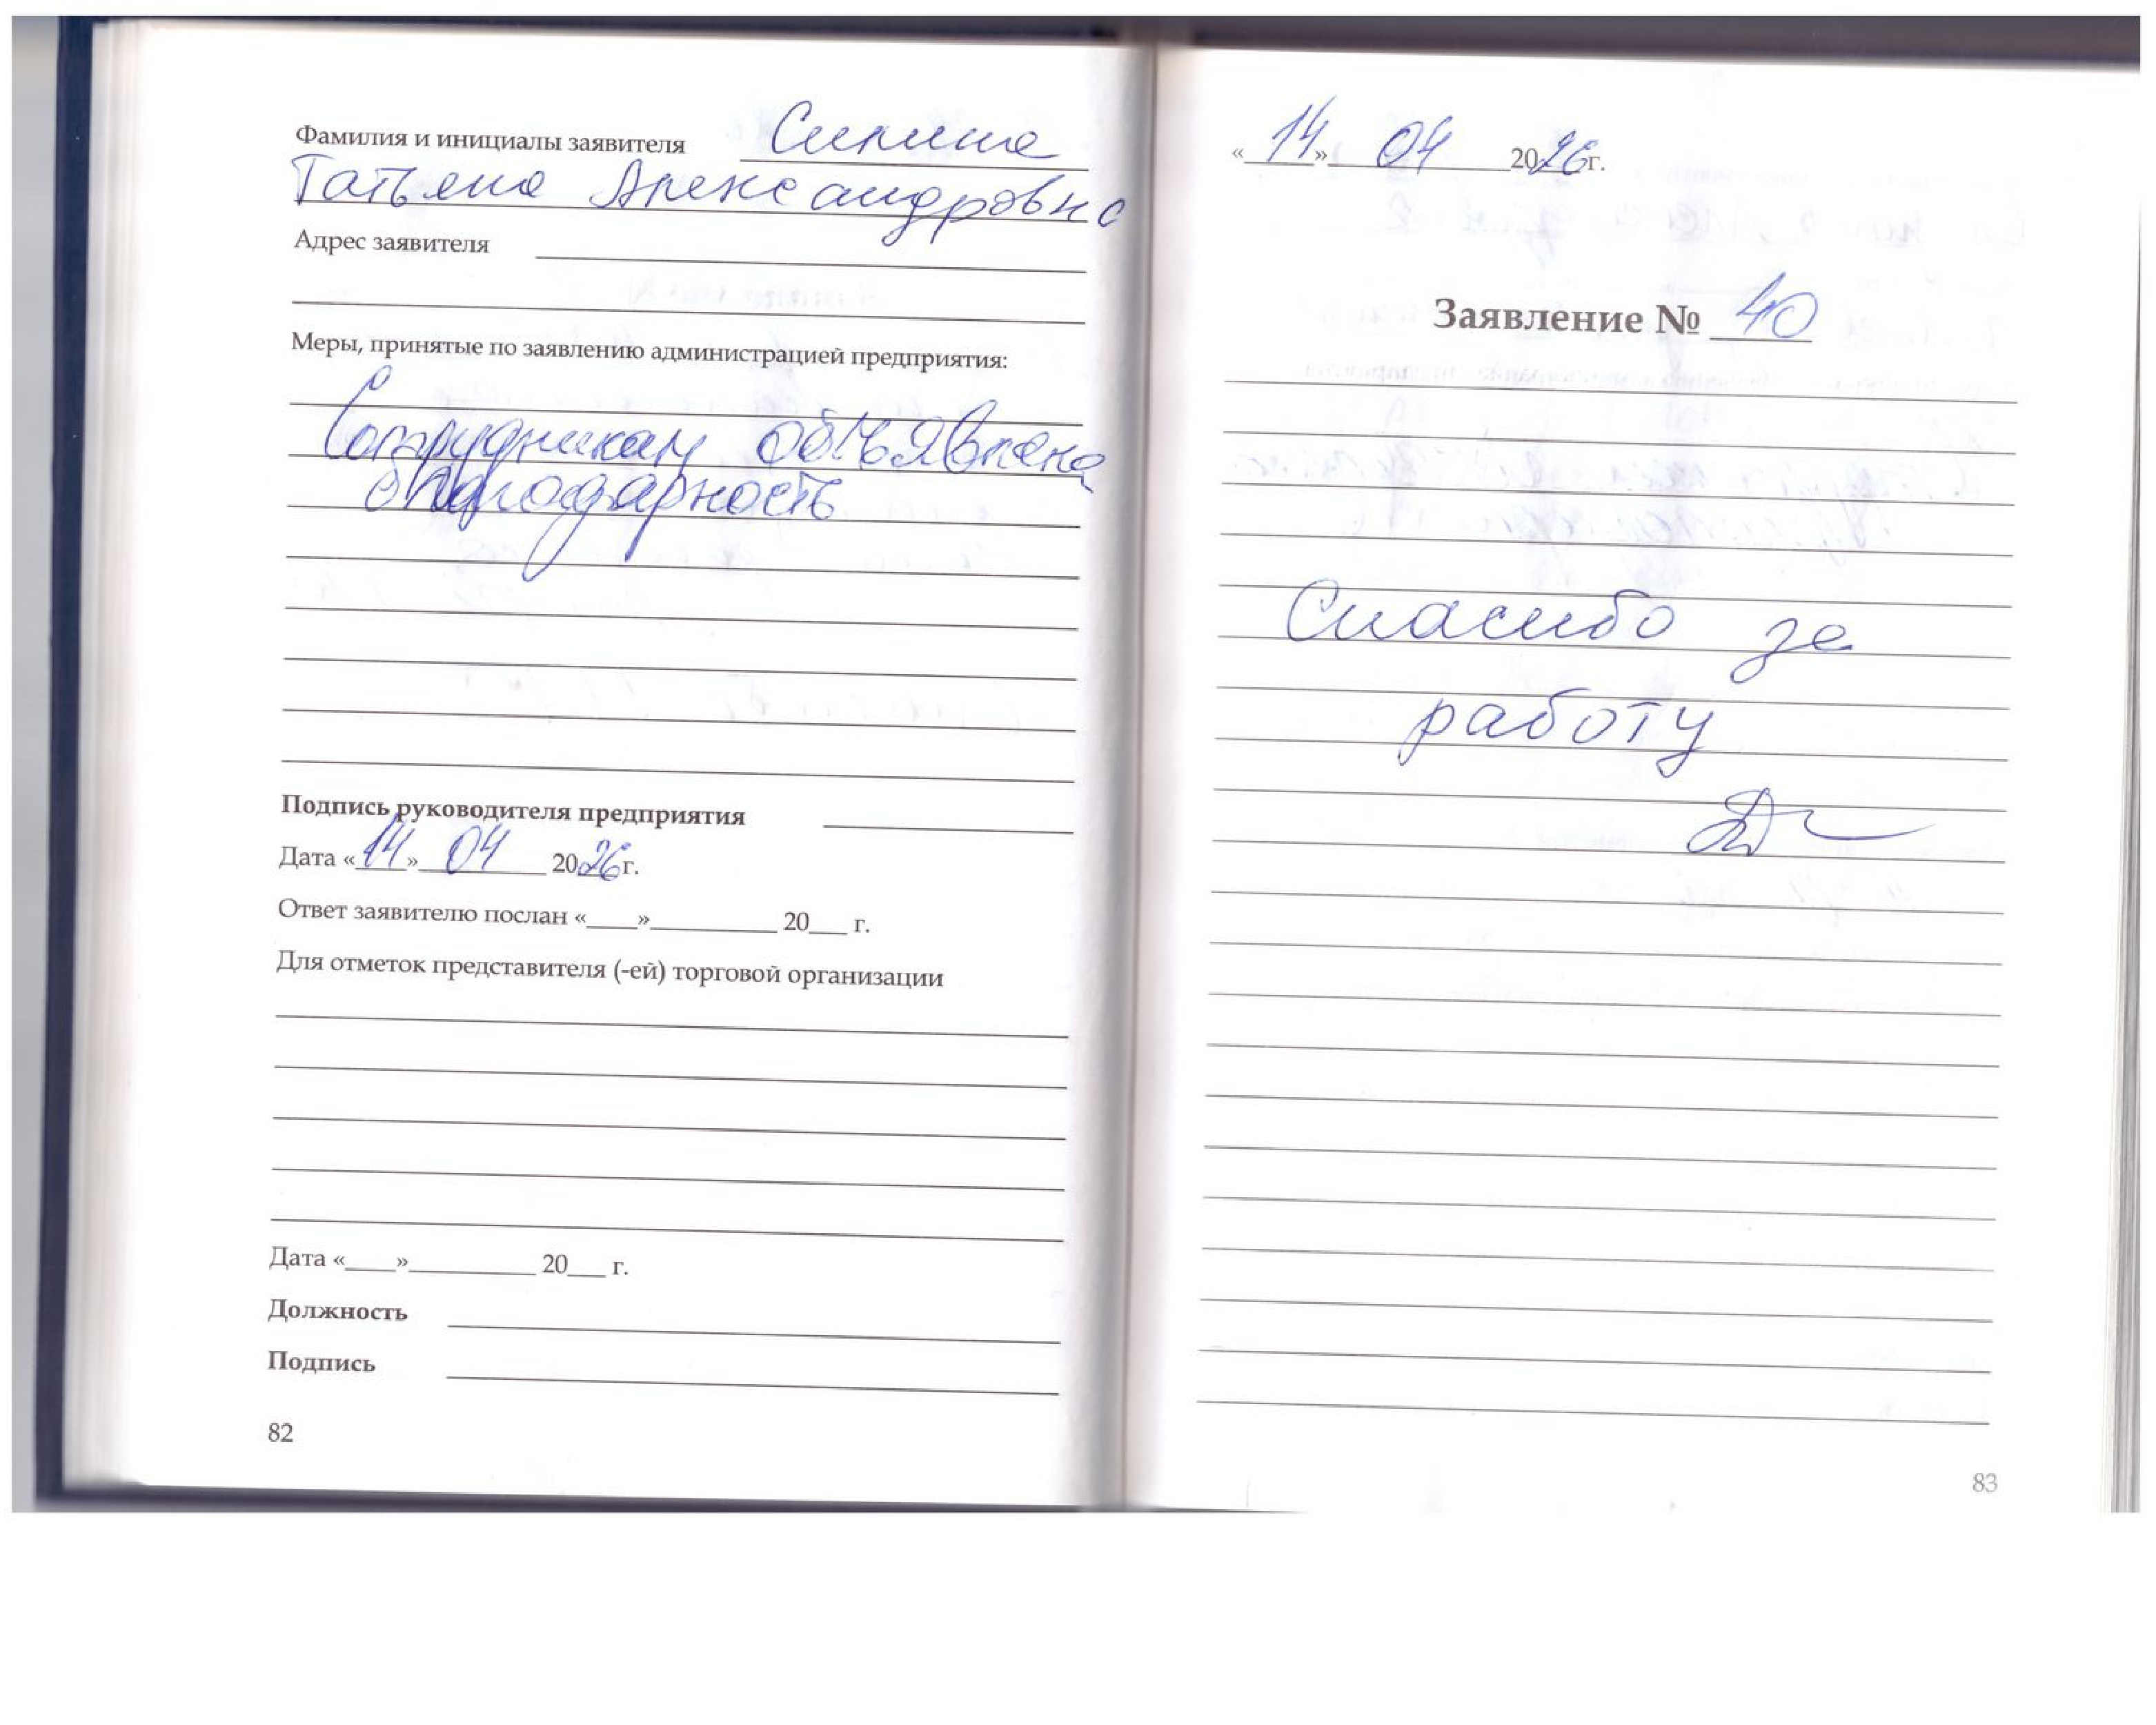 Фамилия и инициалы заявителя
Татьяна Александровна
Адрес заявителя
Меры, принятые по заявлению администрацией предприятия:
Сотрудникам объявлена
благодарность
Подпись руководителя предприятия
Дата «14» 04 2026 г.
Ответ заявителю послан «____»__________ 20___ г.
Для отметок представителя (-ей) торговой организации
Дата «____»__________ 20___ г.
Должность
Подпись
82
«14» 04 2026 г.
Заявление № 40
Спасибо за
работу
83